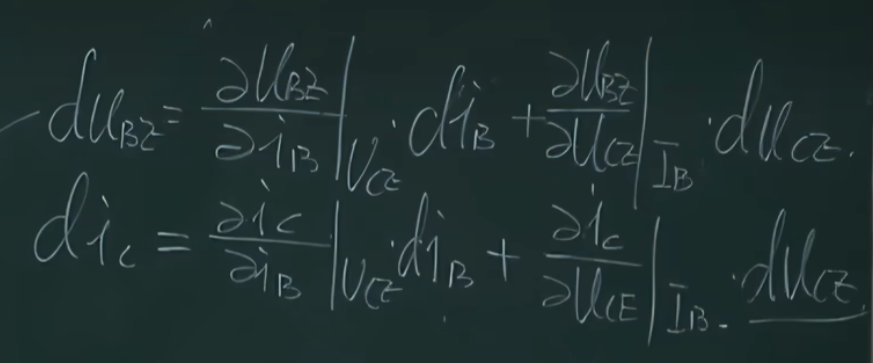 du_BE = ∂u_BE/∂i_B |_{U_CE} · di_B + ∂u_BE/∂u_CE |_{I_B} · du_CE.
di_C = ∂i_C/∂i_B |_{U_CE} · di_B + ∂i_C/∂u_CE |_{I_B} · du_CE